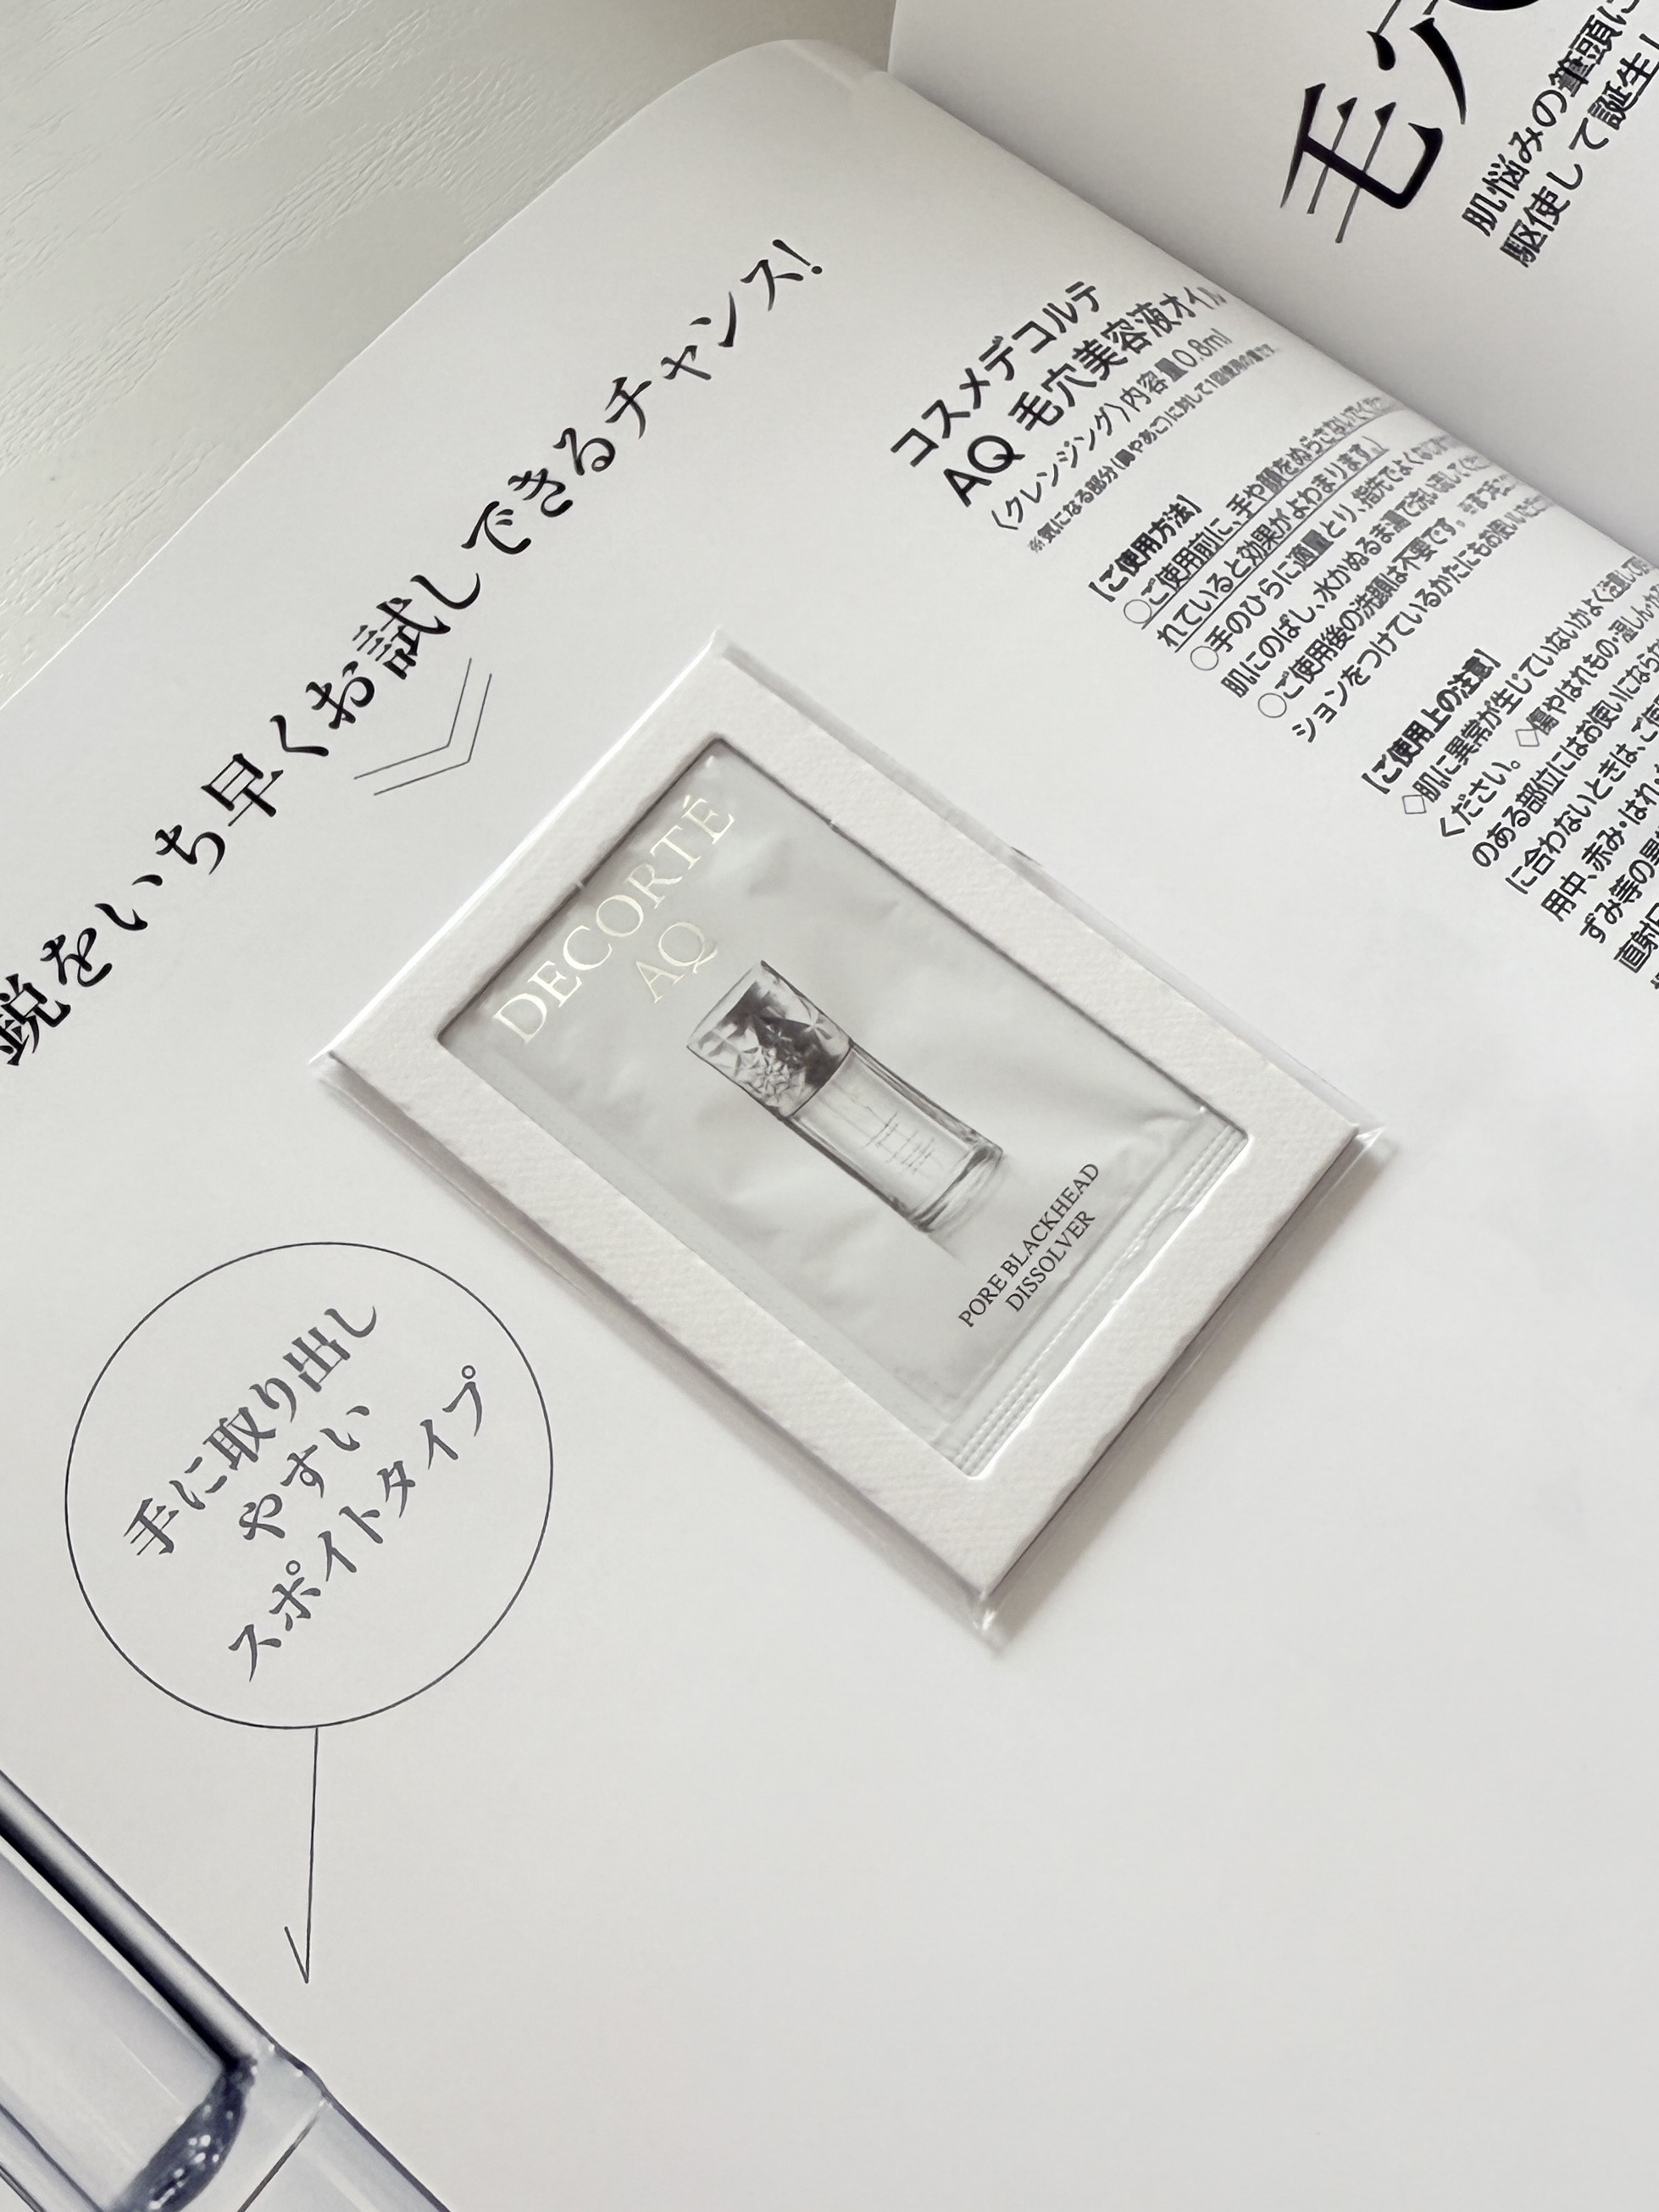 毛穴
肌悩みの筆頭に
駆使して誕生し
鋭をいち早くお試しできるチャンス!
コスメデコルテ
AQ 毛穴美容液オイル
〈クレンジング〉内容量0.8ml
※気になる部分(鼻やあご)に対して1回使用の量です。
【ご使用方法】
○ご使用前に、手や顔をぬらさないでください
れていると効果がよわまります。
○手のひらに適量とり、指先でよくなじ
肌にのばし、水かぬるま湯で洗い流してくだ
○ご使用後の洗顔は不要です。※まつ毛
ションをつけているかたにもお使いいただ
【ご使用上の注意】
◇肌に異常が生じていないかよく注意して
ください。◇傷やはれもの・湿しん
のある部位にはお使いにならな
に合わないときは、ご使
用中、赤み・はれ・
ずみ等の異
直射日
DECORTÉ
AQ
PORE BLACKHEAD
DISSOLVER
手に取り出し
やすい
スポイトタイプ